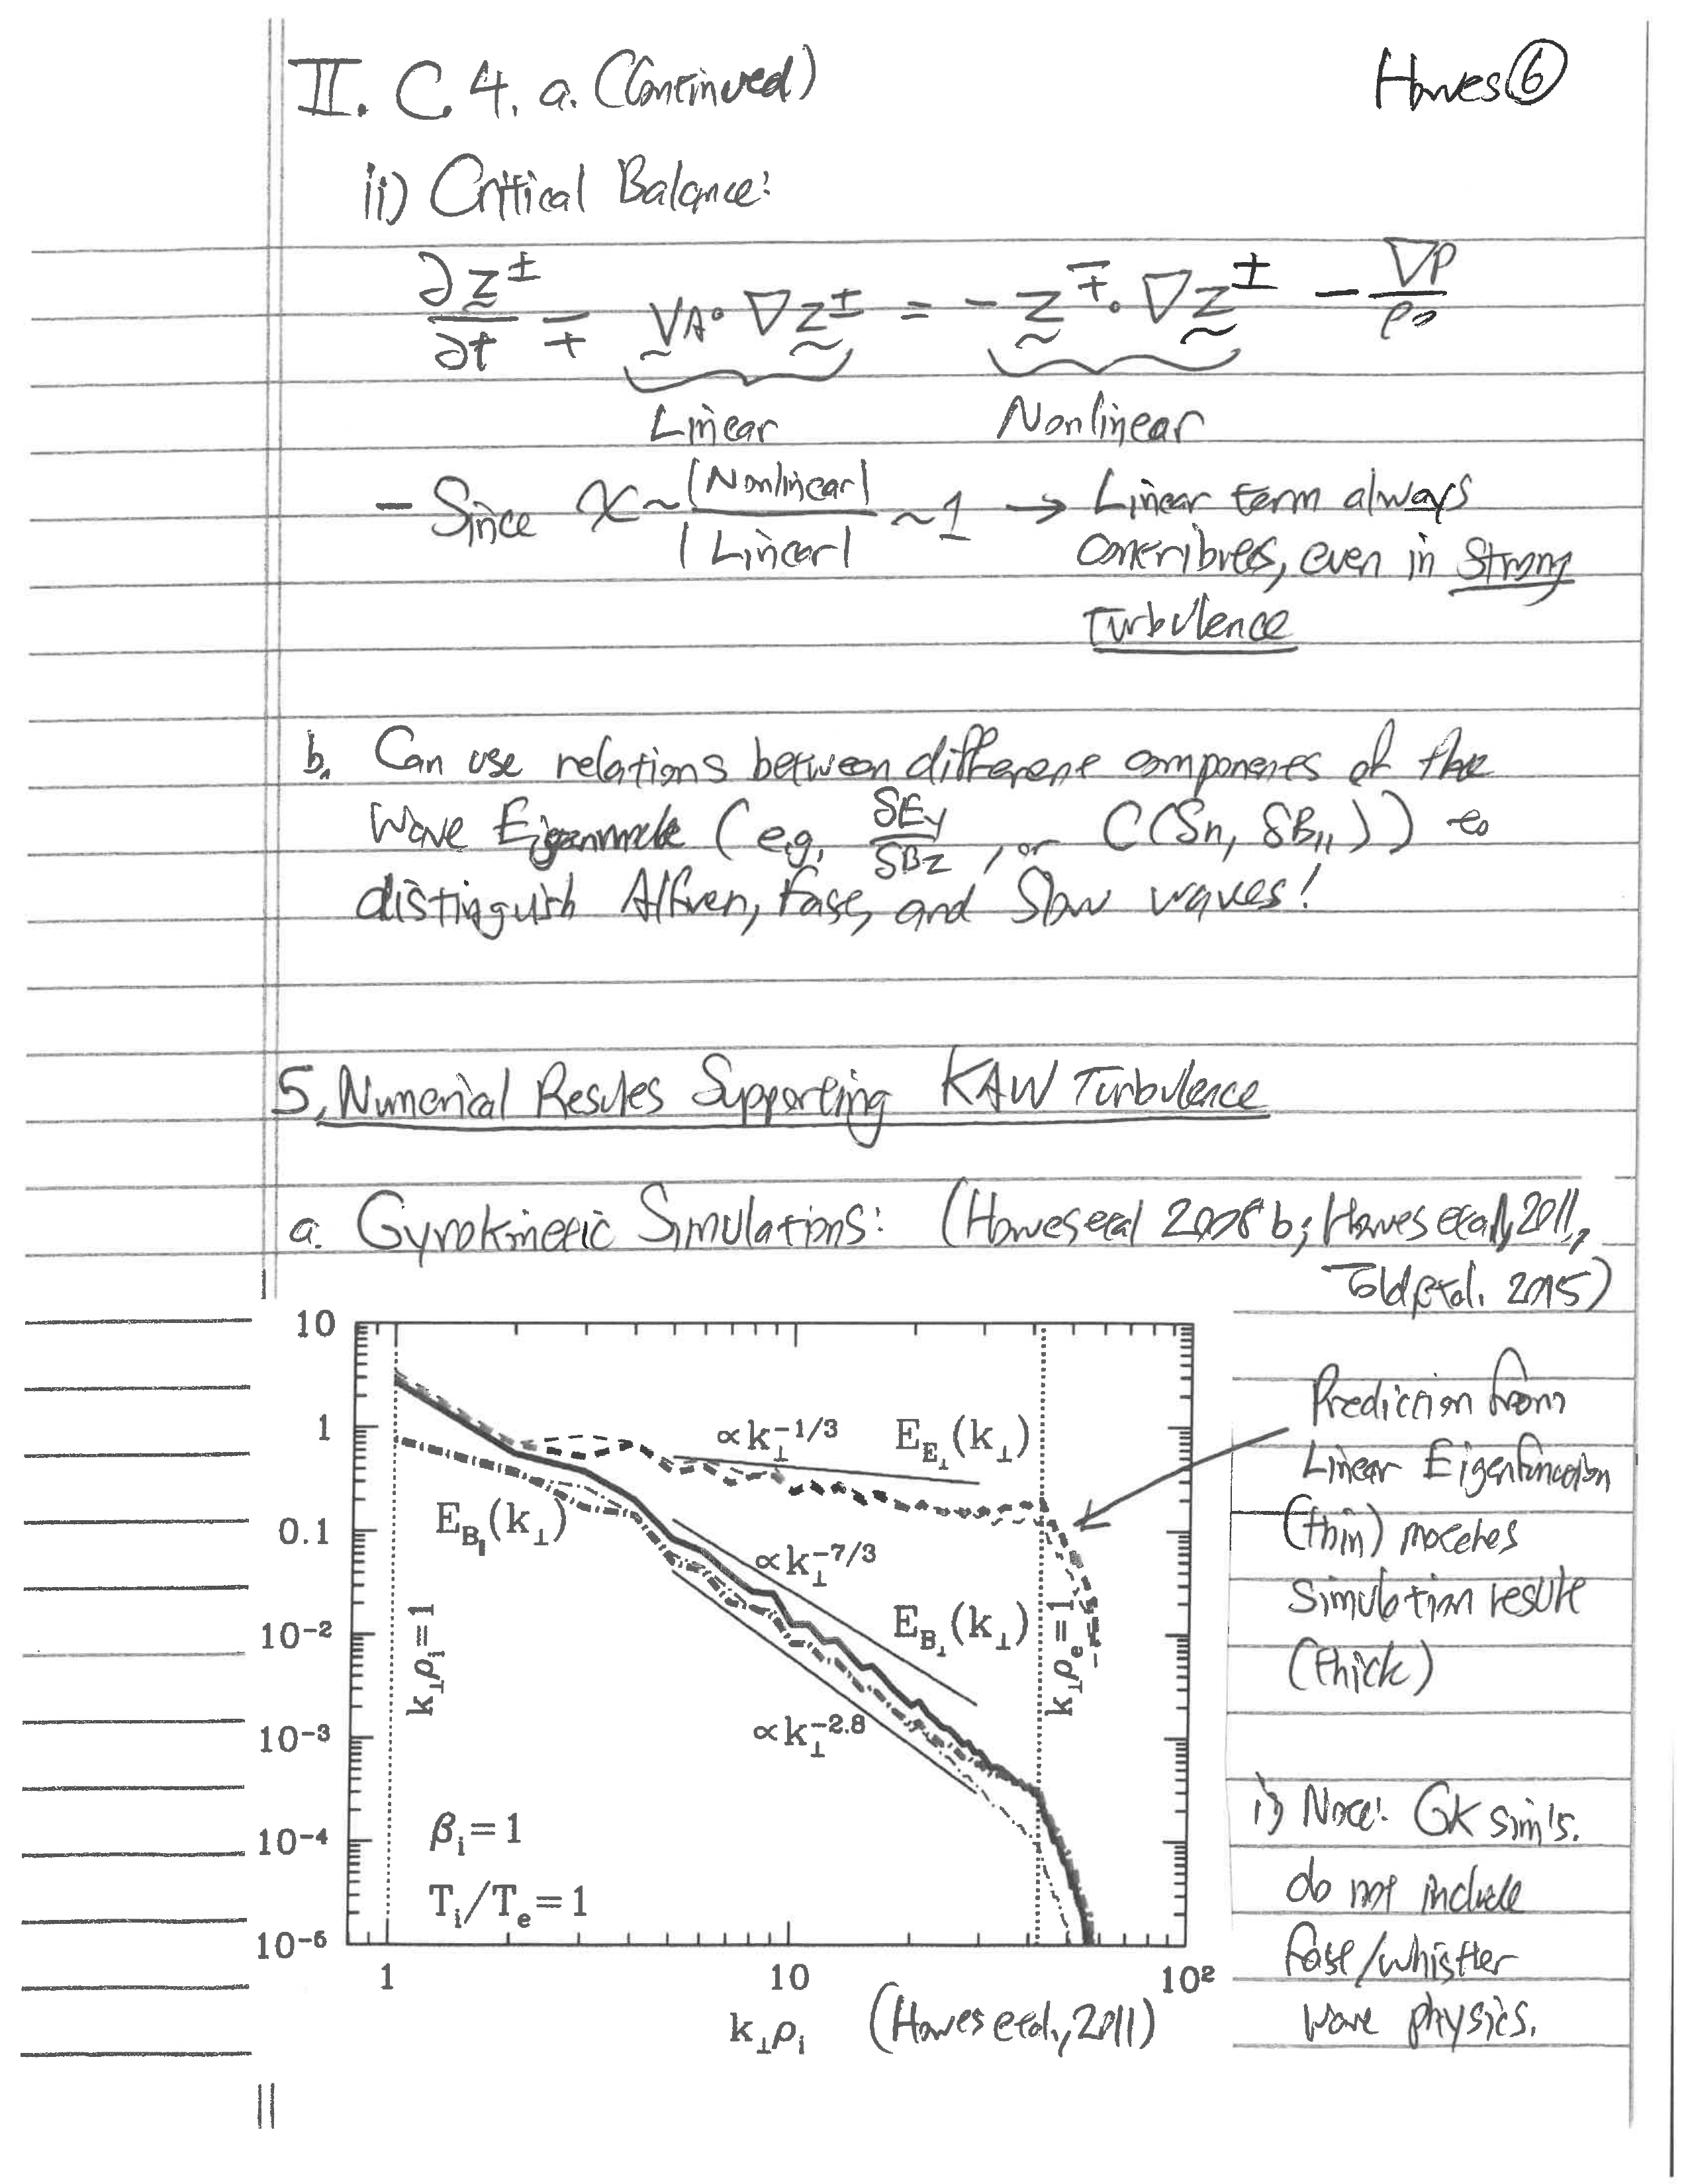 II. C. 4. a. (Continued)
Howes ⑥
ii) Critical Balance:
∂z^± / ∂t ∓ V_A · ∇z^± = − z^∓ · ∇z^± − ∇P / ρ₀
Linear
Nonlinear
- Since χ ~ |Nonlinear| / |Linear| ~ 1 → Linear term always
contributes, even in Strong
Turbulence
b. Can use relations between different components of the
Wave Eigenmode (e.g. δE_y / δB_z, or C(δn, δB_∥)) to
distinguish Alfven, Fast, and Slow waves!
5. Numerical Results Supporting KAW Turbulence
a. Gyrokinetic Simulations: (Howes et al 2008b; Howes et al, 2011,
Told et al. 2015)
10
1
0.1
10⁻²
10⁻³
10⁻⁴
10⁻⁶
∝k_⊥^−1/3
E_E⊥(k_⊥)
E_B∥(k_⊥)
∝k_⊥^−7/3
E_B⊥(k_⊥)
∝k_⊥^−2.8
k_⊥ρ_i=1
k_⊥ρ_e=1
β_i=1
T_i/T_e=1
1
10
10²
k_⊥ρ_i
(Howes et al., 2011)
Prediction from
Linear Eigenfunction
(thin) matches
Simulation result
(thick)
i) Note: GK sim's.
do not include
fast/whistler
wave physics.